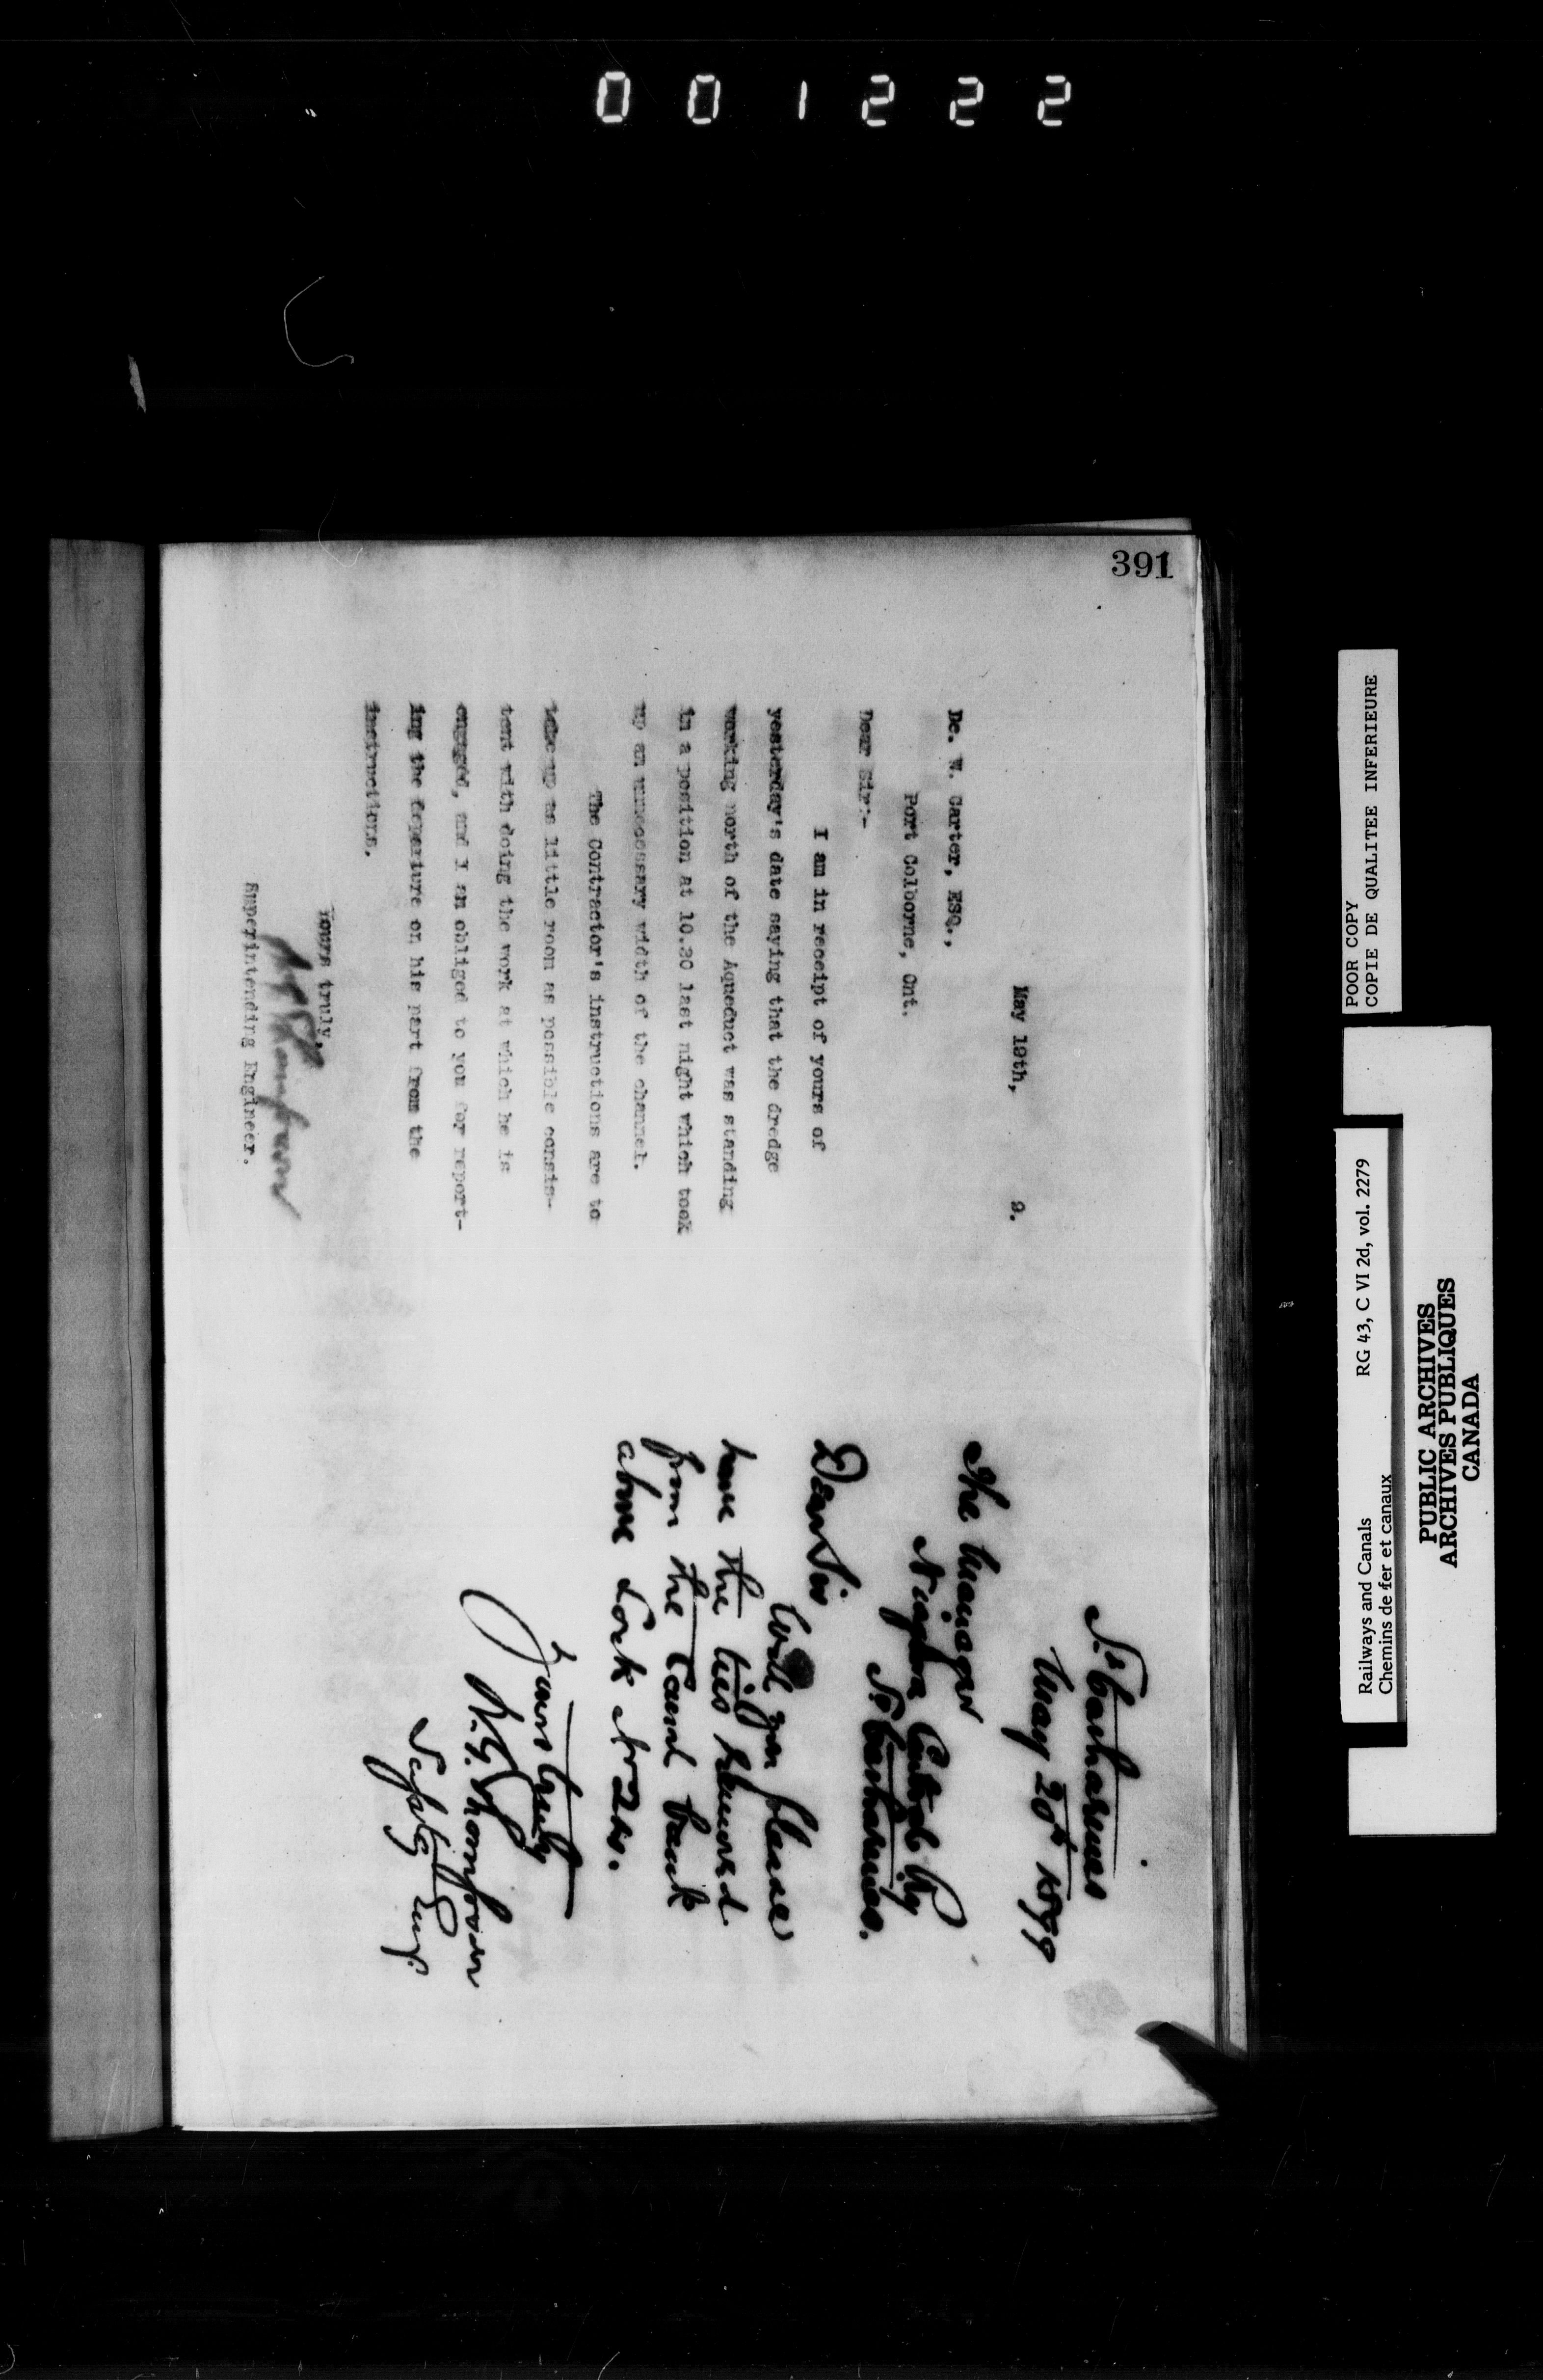 001222
391
May 19th, 9.
De. W. Carter, ESQ.,
Port Colborne, Ont.
Dear Sir:-
I am in receipt of yours of
yesterday's date saying that the dredge
working north of the Aqueduct was standing
in a position at 10.30 last night which took
up an unnecessary width of the channel.
The Contractor's instructions are to
take up as little room as possible consis-
tent with doing the work at which he is
engaged, and I am obliged to you for report-
ing the departure on his part from the
instructions.
Yours truly,
W.G. Thompson
Superintending Engineer.
St Catharines
May 20th 1899
The Manager
Niagara Central Ry
St Catharines.
Dear Sir
Will you please
have the ties removed
from the Canal bank
above Lock No 24.
Yours truly
W.G. Thompson
Suptg Eng.
POOR COPY
COPIE DE QUALITEE INFERIEURE
Railways and Canals RG 43, C VI 2d, vol. 2279
Chemins de fer et canaux
PUBLIC ARCHIVES
ARCHIVES PUBLIQUES
CANADA